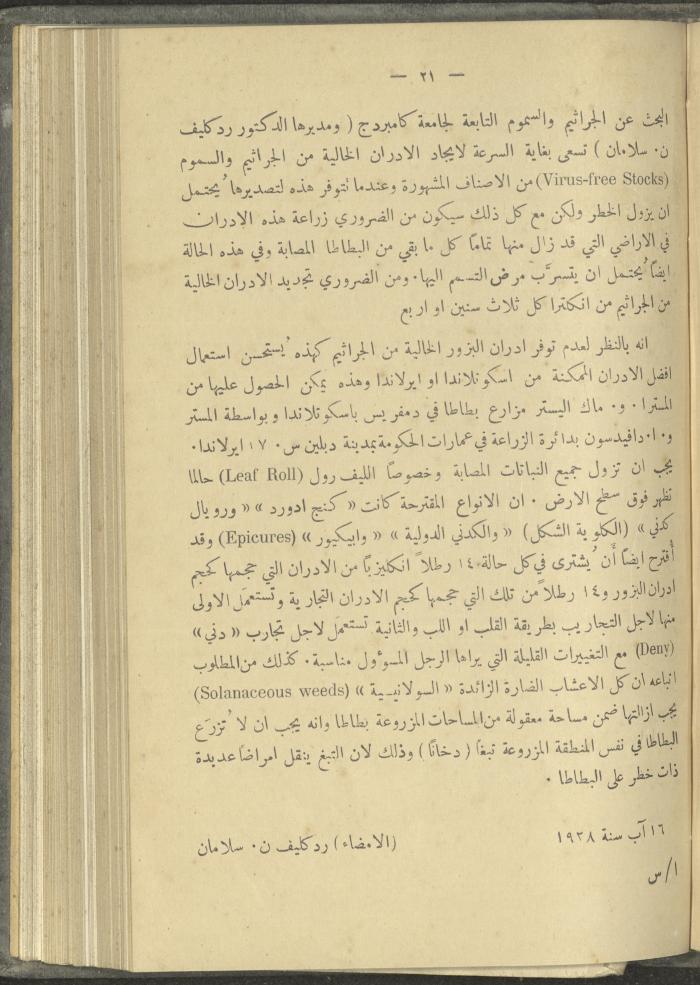 — ٢١ —
البحث عن الجراثيم والسموم التابعة لجامعة كامبردج ( ومديرها الدكتور ردكليف
ن. سلامان ) تسعى بغاية السرعة لايجاد الادران الخالية من الجراثيم والسموم
(Virus-free Stocks) من الاصناف المشهورة وعندما تتوفر هذه لتصديرها يُحتمل
ان يزول الخطر ولكن مع كل ذلك سيكون من الضروري زراعة هذه الادران
في الاراضي التي قد زال منها تماماً كل ما بقي من البطاطا المصابة وفي هذه الحالة
ايضاً يُحتمل ان يتسرَّب مرض التسمم اليها. ومن الضروري تجديد الادران الخالية
من الجراثيم من انكلترا كل ثلاث سنين او اربع
انه بالنظر لعدم توفر ادران البزور الخالية من الجراثيم كهذه يُستحسن استعمال
افضل الادران الممكنة من اسكوتلاندا او ايرلاندا وهذه يمكن الحصول عليها من
المستر ا. و. ماك اليستر مزارع بطاطا في دمفريس باسكوتلاندا وبواسطة المستر
و. ا. دافيدسون بدائرة الزراعة في عمارات الحكومة بمدينة دبلين س. ١٧ ايرلاندا.
يجب ان تزول جميع النباتات المصابة وخصوصاً الليف رول (Leaf Roll) حالما
تظهر فوق سطح الارض . ان الانواع المقترحة كانت « كنج ادورد » « ورويال
كدني » (الكلوية الشكل) « والكدني الدولية » « وابيكيور » (Epicures) وقد
أُقترح ايضاً أن يُشترى في كل حالة ١٤ رطلاً انكليزياً من الادران التي حجمها كحجم
ادران البزور و١٤ رطلاً من تلك التي حجمها كحجم الادران التجارية وتستعمَل الاولى
منها لاجل التجاريب بطريقة القلب او اللب والثانية تستعمَل لاجل تجارب « دني »
(Deny) مع التغييرات القليلة التي يراها الرجل المسوءول مناسبة. كذلك من المطلوب
اتباعه ان كل الاعشاب الضارة الزائدة « السولانيسية » (Solanaceous weeds)
يجب ازالتها ضمن مساحة معقولة من المساحات المزروعة بطاطا وانه يجب ان لا تُزرَع
البطاطا في نفس المنطقة المزروعة تبغاً ( دخاناً ) وذلك لان التبغ ينقل امراضاً عديدة
ذات خطر على البطاطا .
١٦ آب سنة ١٩٣٨
(الامضاء) ردكليف ن. سلامان
ا/س